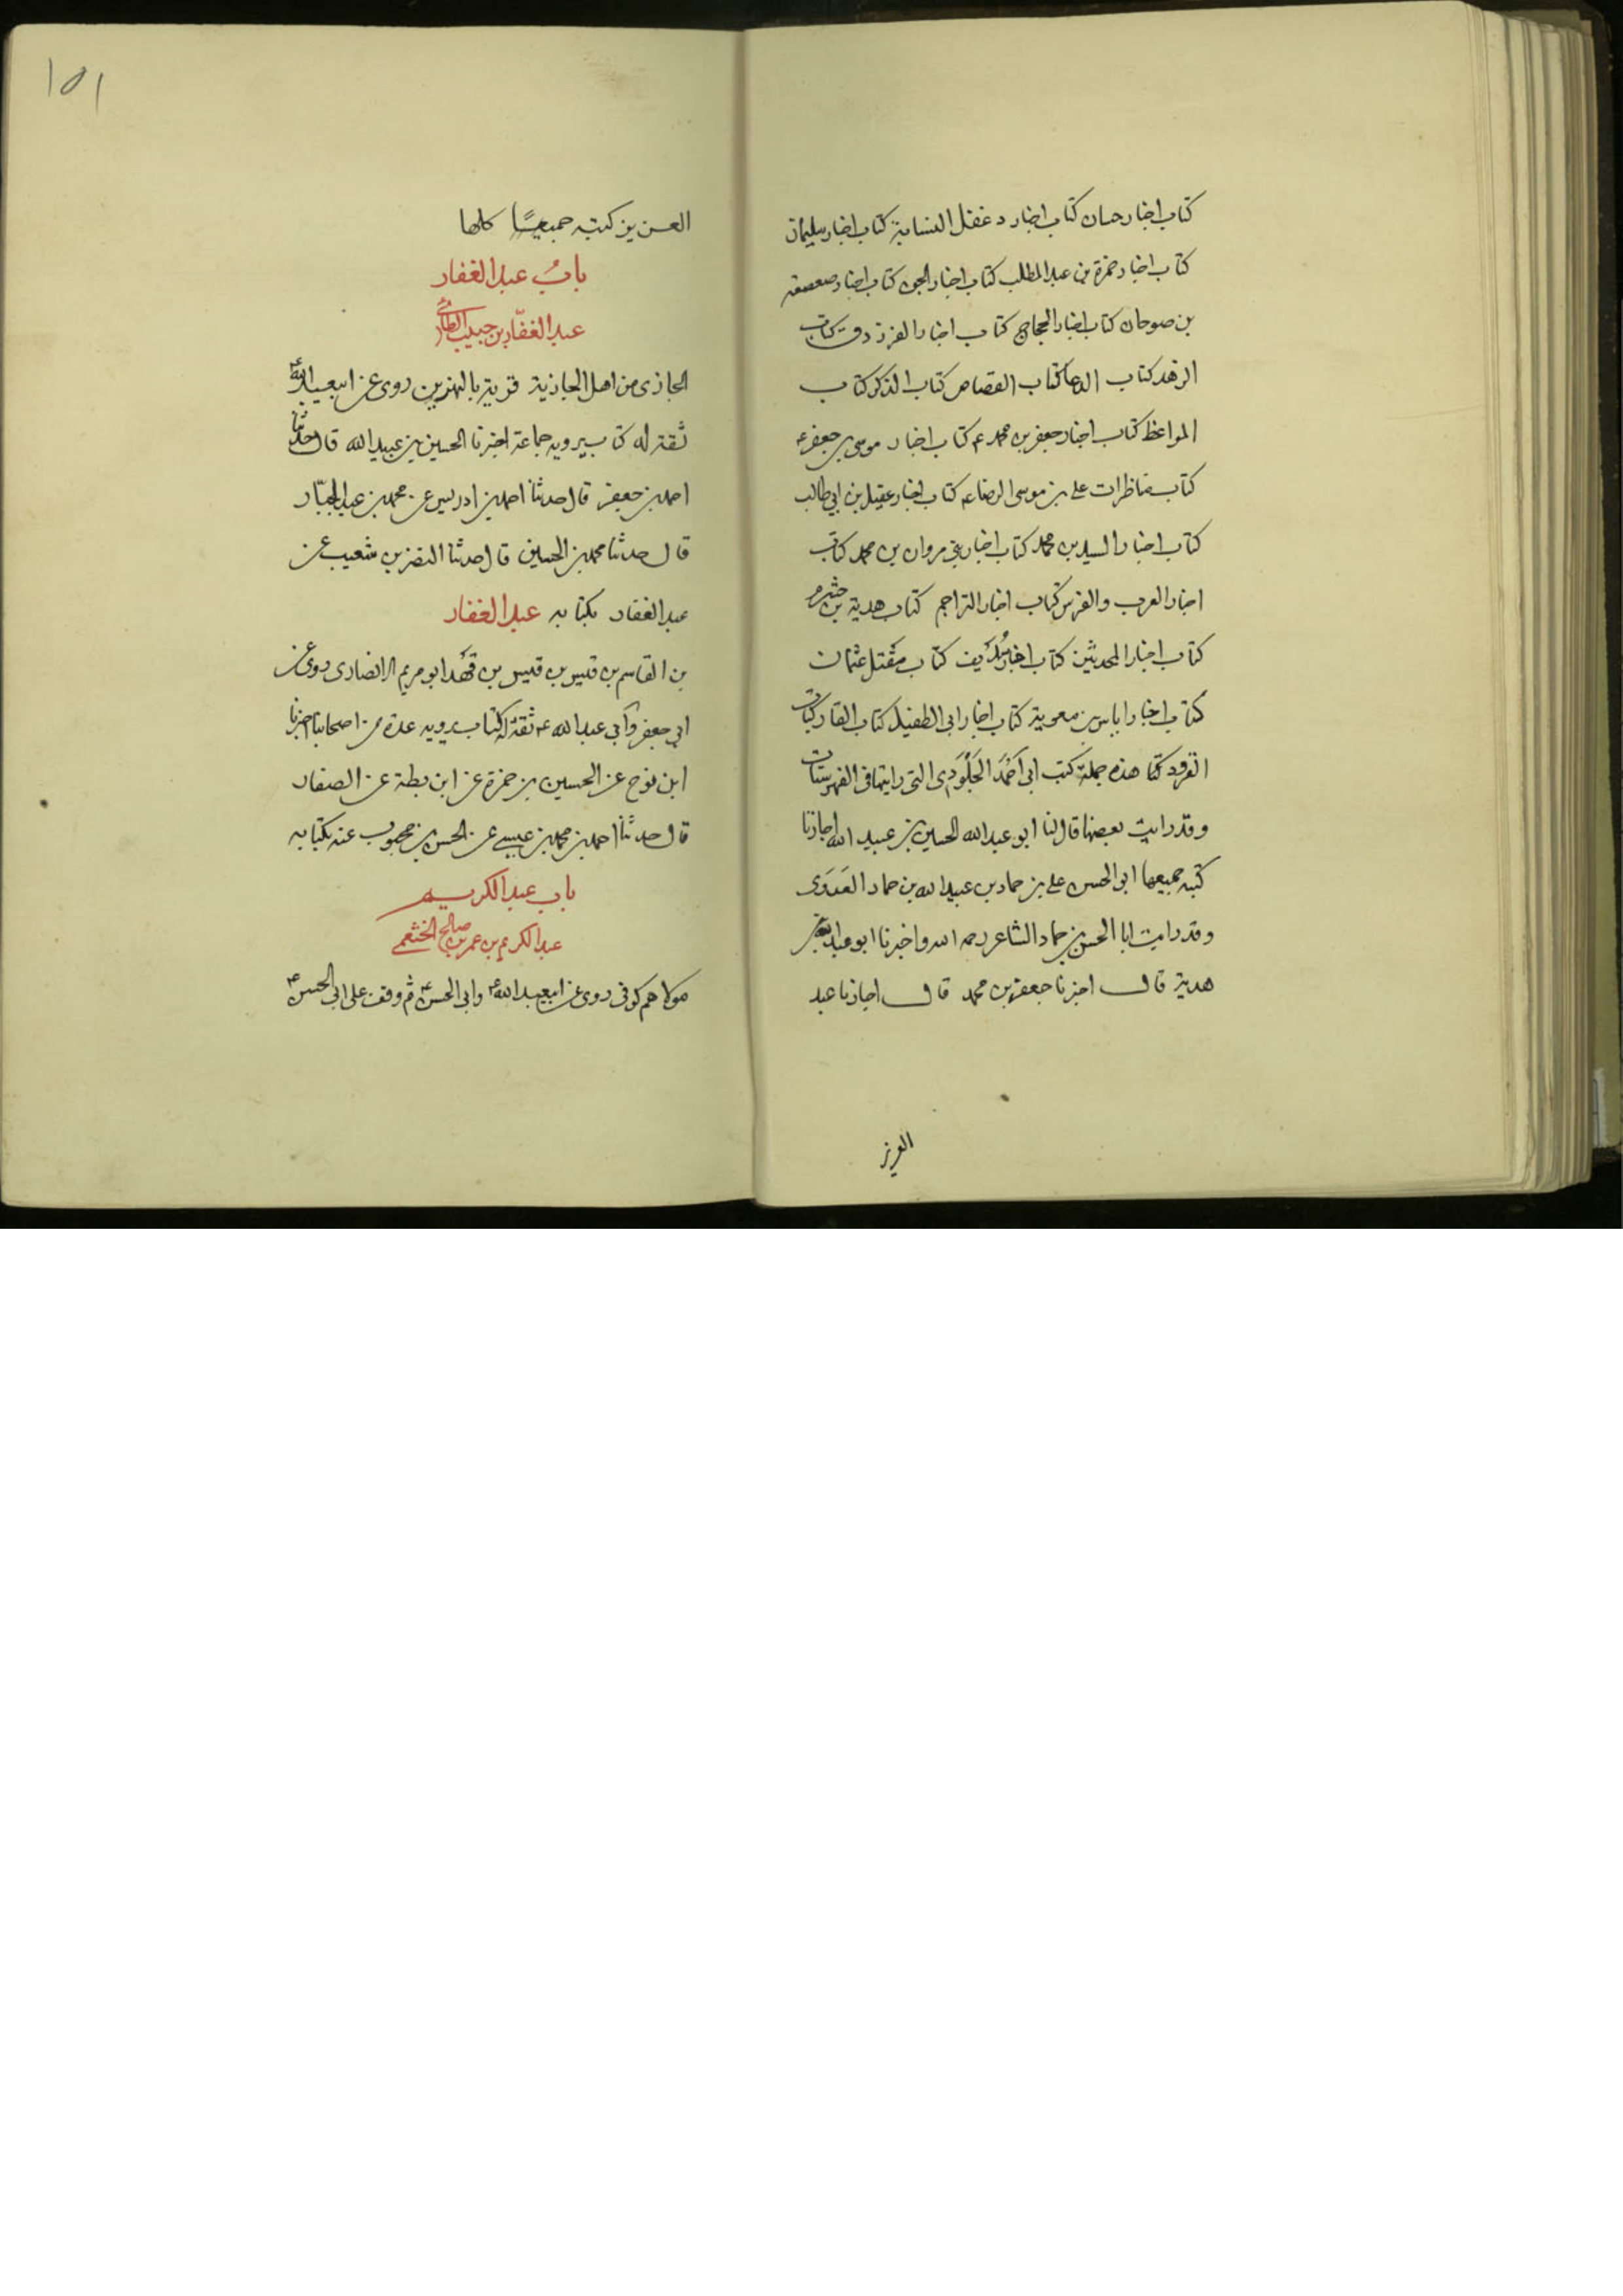 كتاب اخبار حسان كتاب اخبار دغفل النسابة كتاب اخبار سليمان
كتاب اخبار حمزة بن عبد المطلب كتاب اخبار الجن كتاب اخبار صعصعه
بن صوحان كتاب اخبار الحجاج كتاب اخبار الفرزدق كتاب
الزهد كتاب الدعا كتاب القصاص كتاب الذكر كتاب
المواعظ كتاب اخبار جعفر بن محمد ع كتاب اخبار موسى بن جعفر ع
كتاب مناظرات على بن موسى الرضا ع كتاب اخبار عقيل بن ابي طالب
كتاب اخبار السيد بن محمد كتاب اخبار بني مروان بن محمد كتاب
اخبار العرب والفرس كتاب اخبار التراجم كتاب هدية بن خشرم
كتاب اخبار المحدثين كتاب اخبار سديف كتاب مقتل عثمان
كتاب اخبار اياس بن معوية كتاب اخبار ابى الطفيل كتاب القار كتاب
القرود كتا هذه جملة كتب ابى احمد الجلودى التى رايتها فى الفهرستات
وقد رايت بعضها قال لنا ابو عبد الله الحسين بن عبيد الله اجازنا
كتبه جميعها ابو الحسن على بن حماد بن عبيد الله بن حماد العدوى
وقد رايت ابا الحسن بن حماد الشاعر رحمه الله واخبرنا ابو عبد الله بن
هدية قال اخبرنا جعفر بن محمد قال اجازنا عبد
العزيز
١٥١
العزيز كتبه جميعًا كلها
باب عبد الغفار
عبد الغفّار بن حبيب الطائي
الجازى من اهل الجازية قرية بالنهرين روى عن ابيعبد الله ع
ثقة له كتاب يرويه جماعة اخبرنا الحسين بن عبيد الله قال حدثنا
احمد بن جعفر قال حدثنا احمد بن ادريس عن محمد بن عبد الجبّار
قال حدثنا محمد بن الحسين قال حدثنا النضر بن شعيب عن
عبد الغفار بكتابه عبد الغفار
بن القاسم بن قيس بن قيس بن قهد ابو مريم الانصارى روى عن
ابي جعفر وابي عبد الله ع ثقة له كتاب يرويه عدة من اصحابنا اخبرنا
ابن نوح عن الحسين بن حمزة عن ابن بطة عن الصفار
قال حدثنا احمد بن محمد بن عيسى عن الحسن بن محبوب عنه بكتابه
باب عبد الكريم
عبد الكريم بن عمر بن صالح الخثعمي
مولاهم كوفى روى عن ابيعبد الله ع وابى الحسن ع ثم وقف على ابى الحسن ع